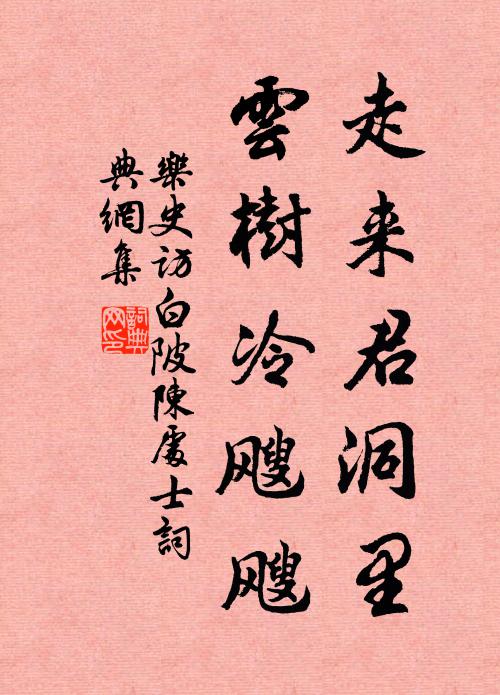 走来君洞里
雲樹冷飕飕
樂史訪白陂陳處士詞
典網集
詞典
网印